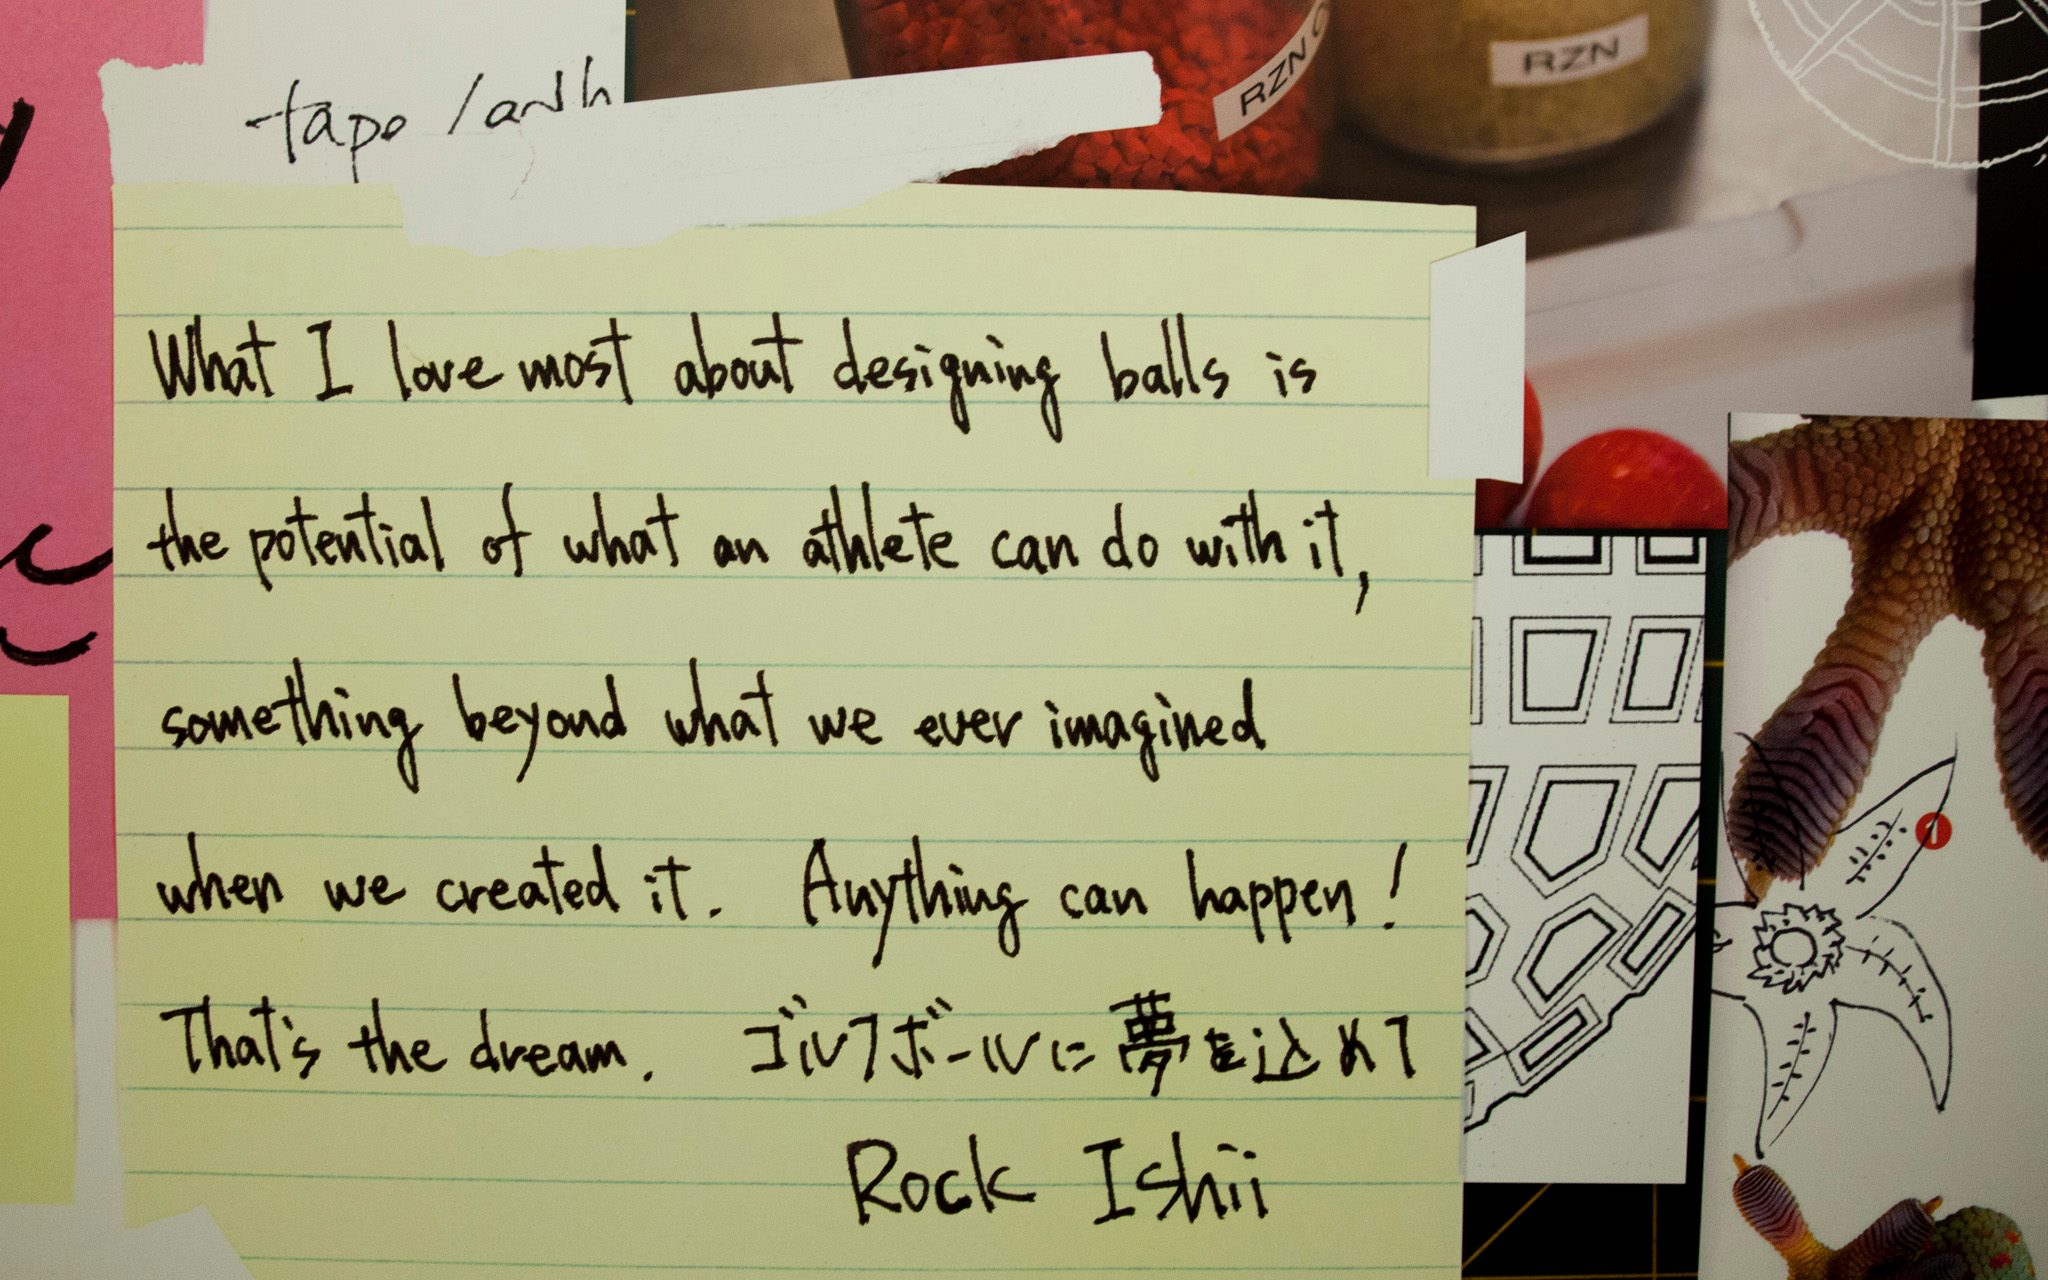 tape
RZN
RZN
What I love most about designing balls is
the potential of what an athlete can do with it,
something beyond what we ever imagined
when we created it. Anything can happen!
That's the dream. ゴルフボールに夢を込めて
Rock Ishii